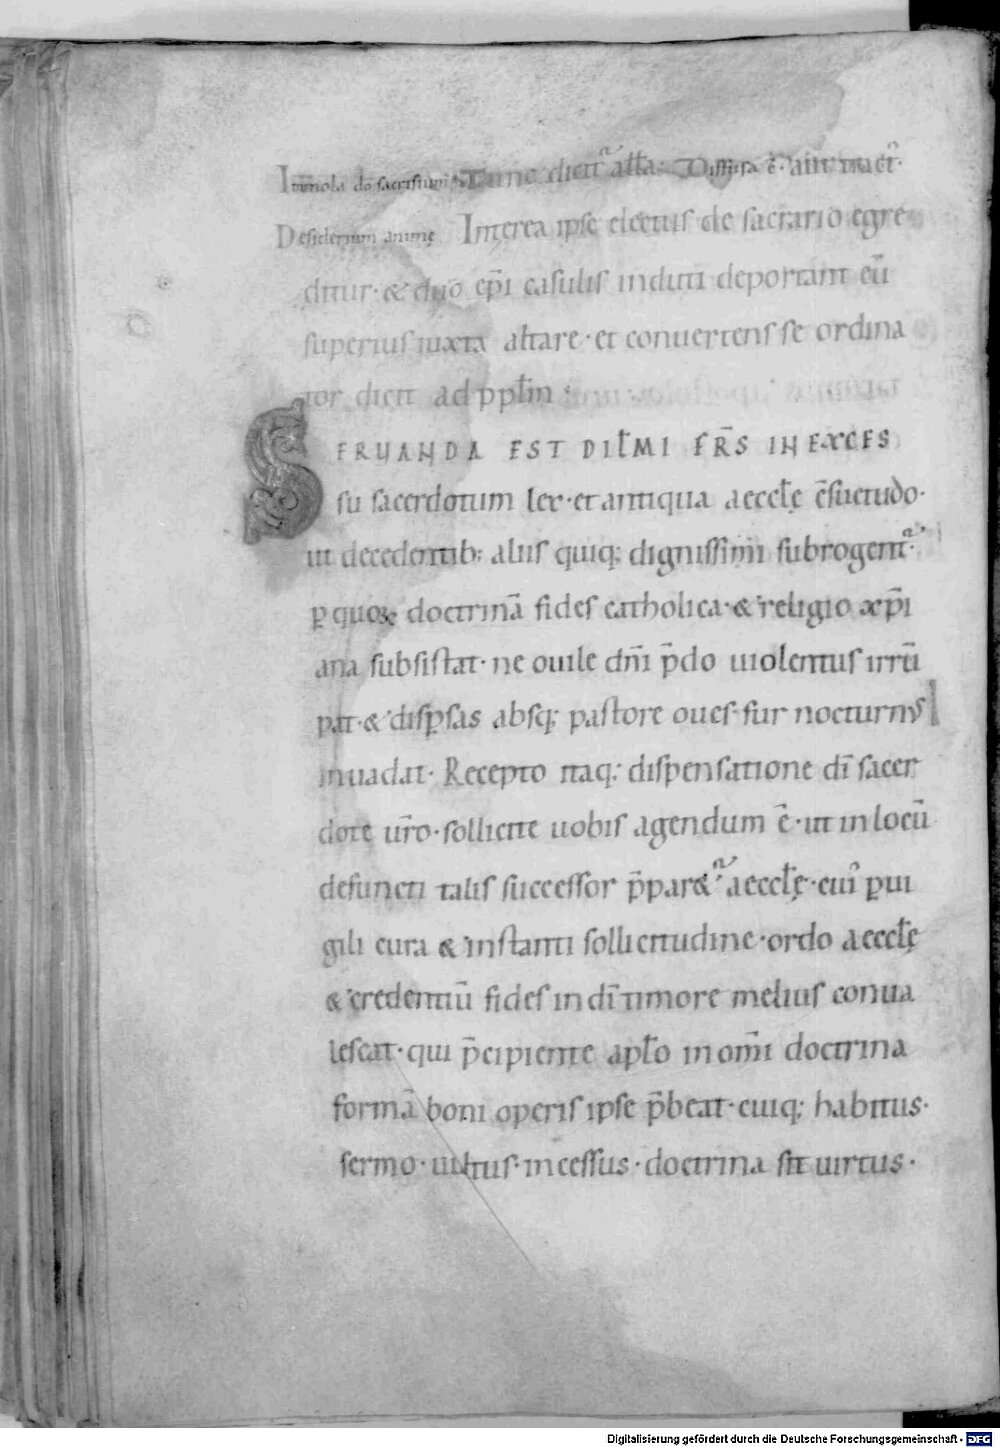 Immola dō sacrificium Tunc dicit᷑ all̄a. Diffusa ē. aut tract̄.
Desiderium animę Interea ipse electus de sacrario egre
ditur. & duo ep̄i casulis induti deportant eū
superius iuxta altare. et conuertens se ordina
tor dicit ad ppl̄m.
SERUANDA EST DIL̄MI FR̄S IN EXCES
su sacerdotum lex. et antiqua aeccl̄ę c̄suetudo.
ut decedentib; aliis quiq; dignissimi subrogent᷑.
ꝑ quoꝝ doctrinā fides catholica. & religio xp̄i
ana subsistat. ne ouile dn̄i p̄do uiolentus irrū
pat. & disꝑsas absq; pastore oues. fur nocturnus
inuadat. Recepto itaq; dispensatione dī sacer
dote ur̄o. sollicite uobis agendum ē. ut in locū
defuncti talis successor p̄par&᷑ aeccl̄ę. cui᷒ ꝑui
gili cura & instanti sollicitudine. ordo aeccl̄ę
& credentiū fides in dī timore melius conua
lescat. qui p̄cipiente apl̄o in om̄i doctrina
formā boni operis ipse p̄beat. cuiq; habitus.
sermo. uultus. incessus. doctrina sit uirtus.
Digitalisierung gefördert durch die Deutsche Forschungsgemeinschaft - DFG